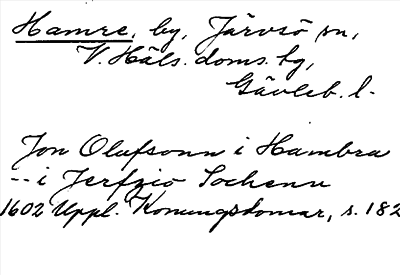 Hamre, by, Järvsö sn,
V. Häls. doms. hg,
Gävleb. l.
Jon Olufsonn i Hambra
-- i Jerfzio Sochenn
1602 Uppl. Konungsdomar, s. 182